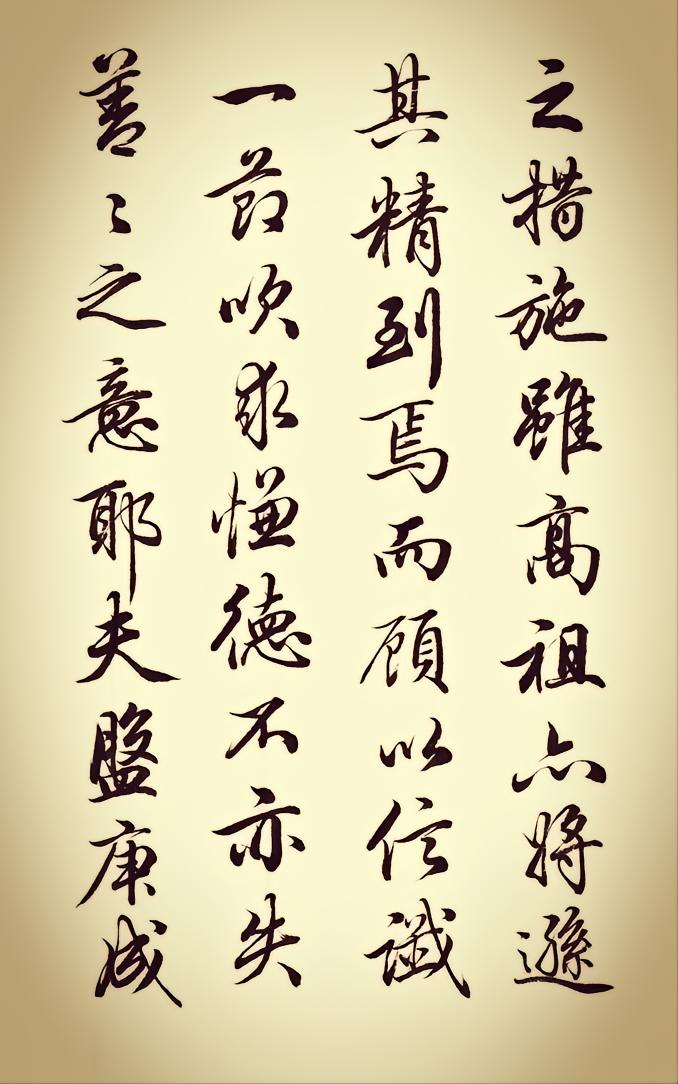 之措施雖高祖亦將遜
其精到焉而顧以信讖
一節吹求慊德不亦失
善〻之意耶夫盤庚成